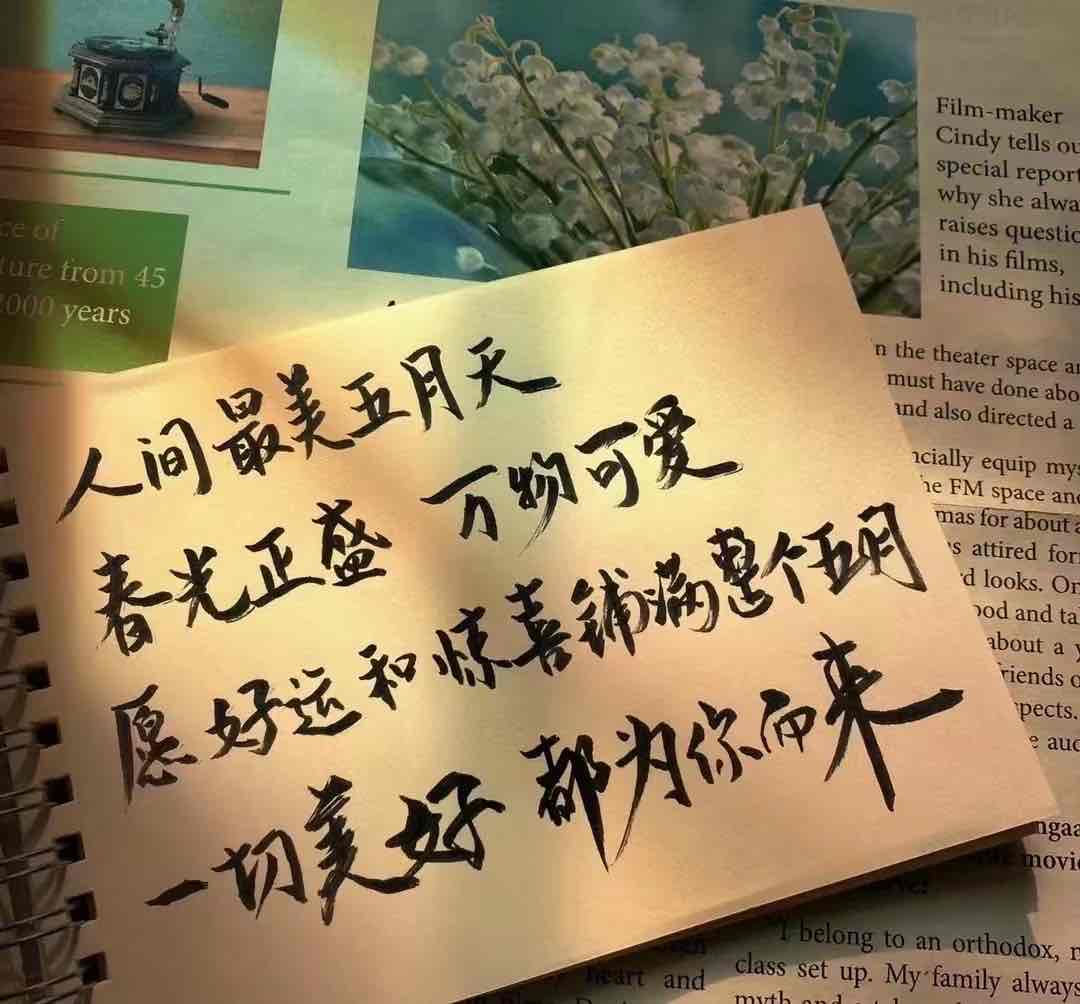 ce of
ture from 45
2000 years
Film-maker
Cindy tells ou
special report
why she alwa
raises questio
in his films,
including his
n the theater space an
must have done abo
and also directed a
ncially equip mys
he FM space and
mas for about a
s attired for
d looks. On
ood and ta
about a y
riends o
spects.
e aud
人间最美五月天
春光正盛 万物可爱
愿好运和惊喜铺满整个五月
一切美好 都为你而来
ngaa
movie
I belong to an orthodox, m
class set up. My family always
heart and